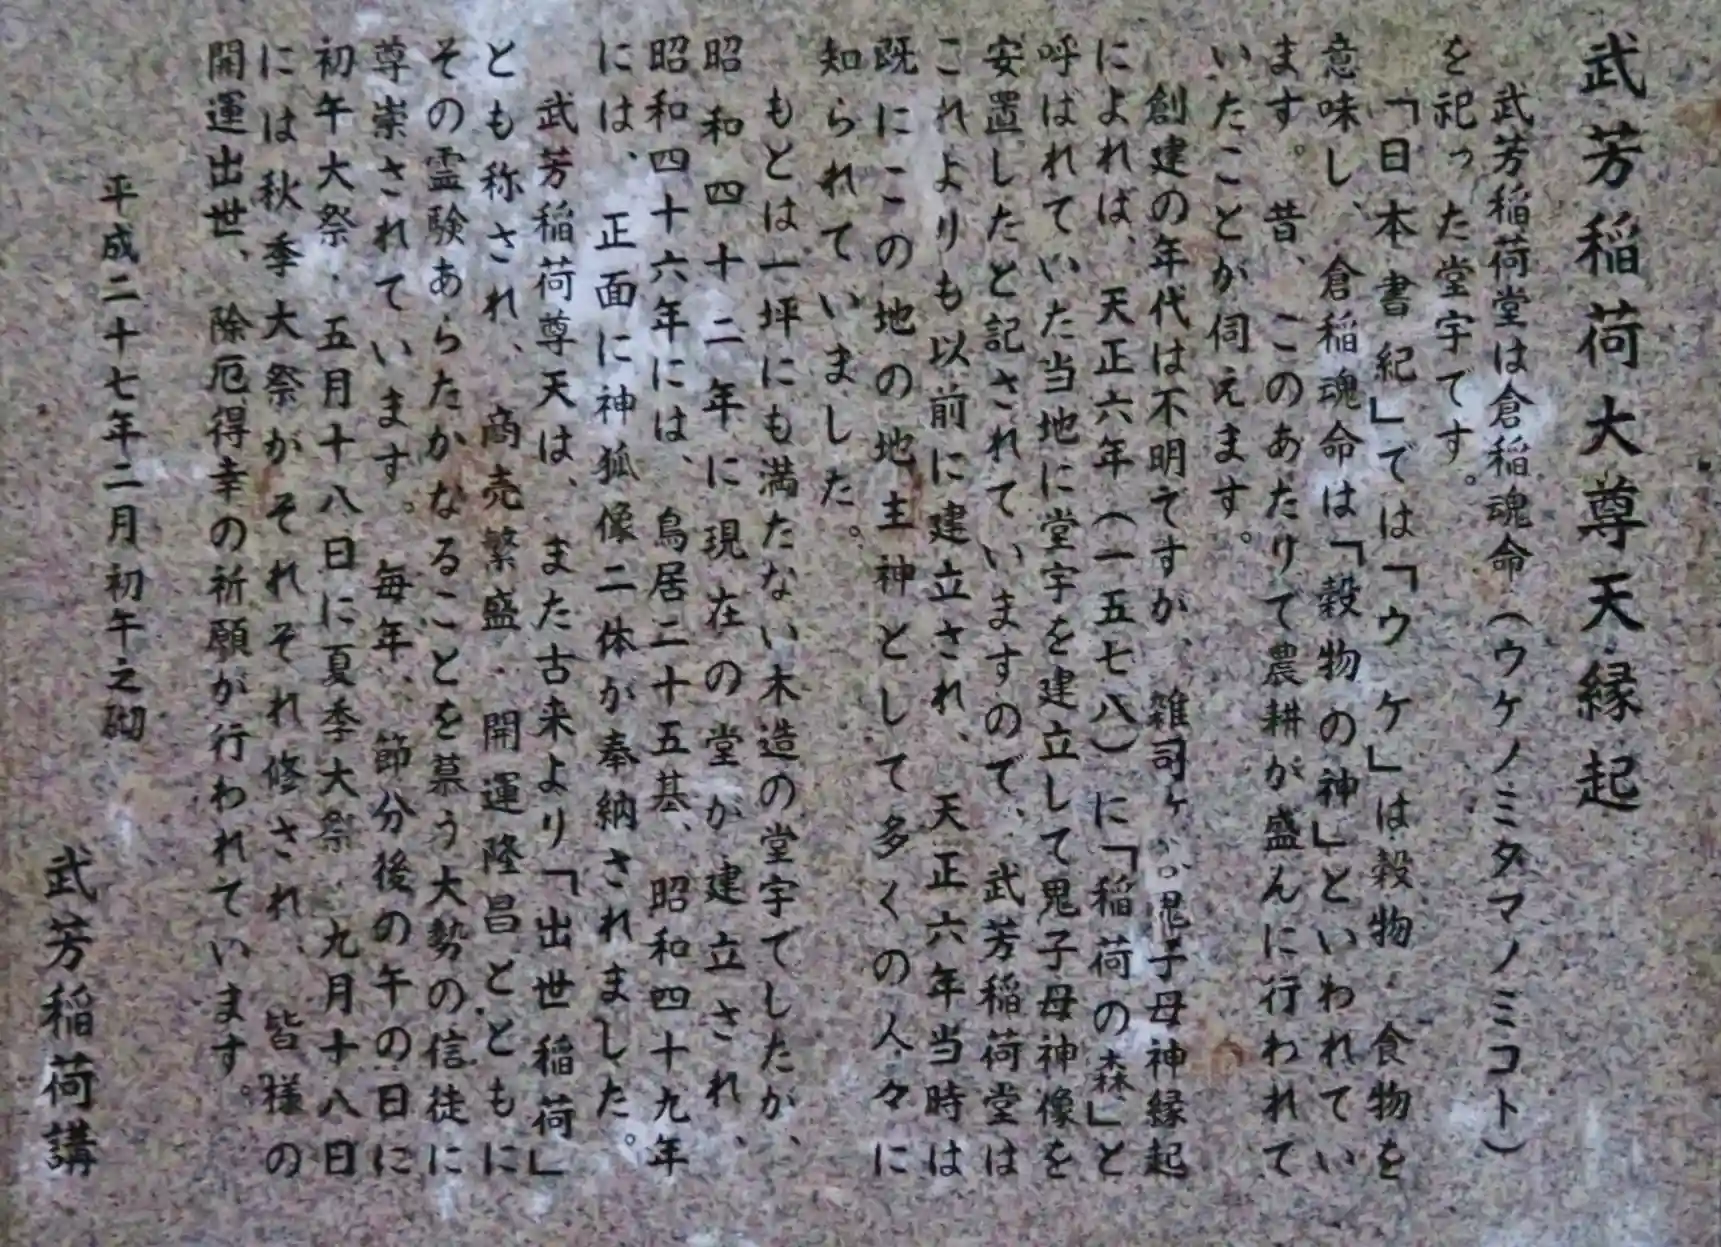 武芳稲荷大尊天縁起
武芳稲荷堂は倉稲魂命（ウケノミタマノミコト）
を祀った堂宇です。
「日本書紀」では「ウケ」は穀物・食物を
意味し、倉稲魂命は「穀物の神」といわれてい
ます。昔、このあたりで農耕が盛んに行われて
いたことが伺えます。
創建の年代は不明ですが、雑司ヶ谷鬼子母神縁起
によれば、天正六年（一五七八）に「稲荷の森」と
呼ばれていた当地に堂宇を建立して鬼子母神像を
安置したと記されていますので、武芳稲荷堂は
これよりも以前に建立され、天正六年当時は
既にこの地の地主神として多くの人々に
知られていました。
もとは一坪にも満たない木造の堂宇でしたが、
昭和四十二年に現在の堂が建立され、
昭和四十六年には、鳥居二十五基、昭和四十九年
には、正面に神狐像二体が奉納されました。
武芳稲荷尊天は、また古来より「出世稲荷」
とも称され、商売繁盛・開運隆昌とともに
その霊験あらたかなることを慕う大勢の信徒に
尊崇されています。毎年、節分後の午の日に
初午大祭・五月十八日に夏季大祭・九月十八日
には秋季大祭がそれぞれ修され、皆様の
開運出世、除厄得幸の祈願が行われています。
平成二十七年二月初午之砌
武芳稲荷講